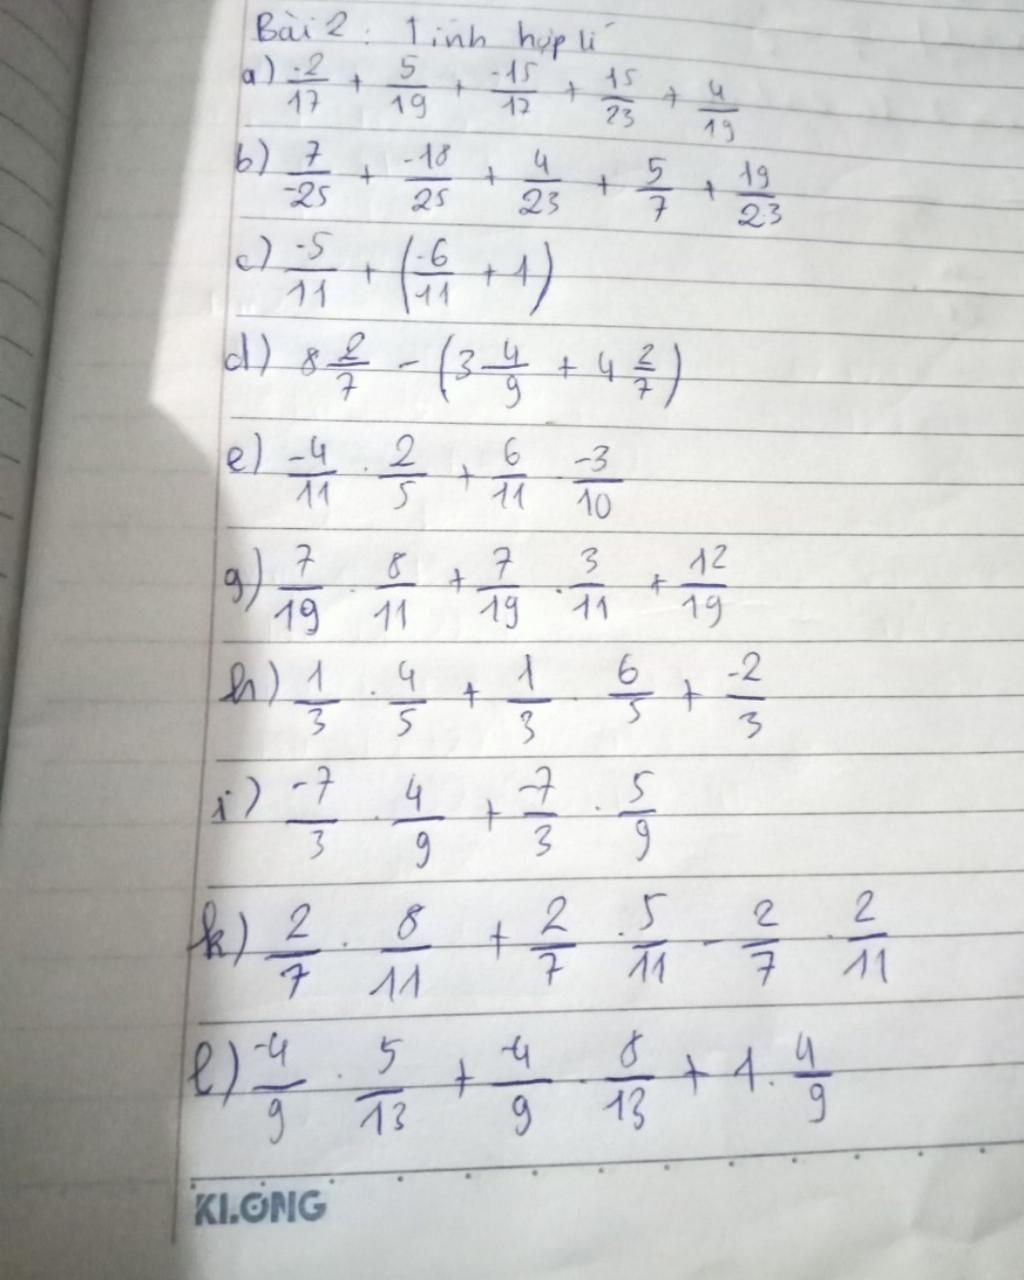 Bài 2: Tính hợp lí
a) -2/17 + 5/19 + -15/17 + 15/23 + 4/19
b) 7/-25 + -18/25 + 4/23 + 5/7 + 19/23
c) -5/11 + (-6/11 + 1)
d) 8 2/7 - (3 4/9 + 4 2/7)
e) -4/11 . 2/5 + 6/11 . -3/10
g) 7/19 . 8/11 + 7/19 . 3/11 + 12/19
h) 1/3 . 4/5 + 1/3 . 6/5 + -2/3
i) -7/3 . 4/9 + -7/3 . 5/9
k) 2/7 . 8/11 + 2/7 . 5/11 - 2/7 . 2/11
l) -4/9 . 5/13 + -4/9 . 8/13 + 1 . 4/9
KLONG